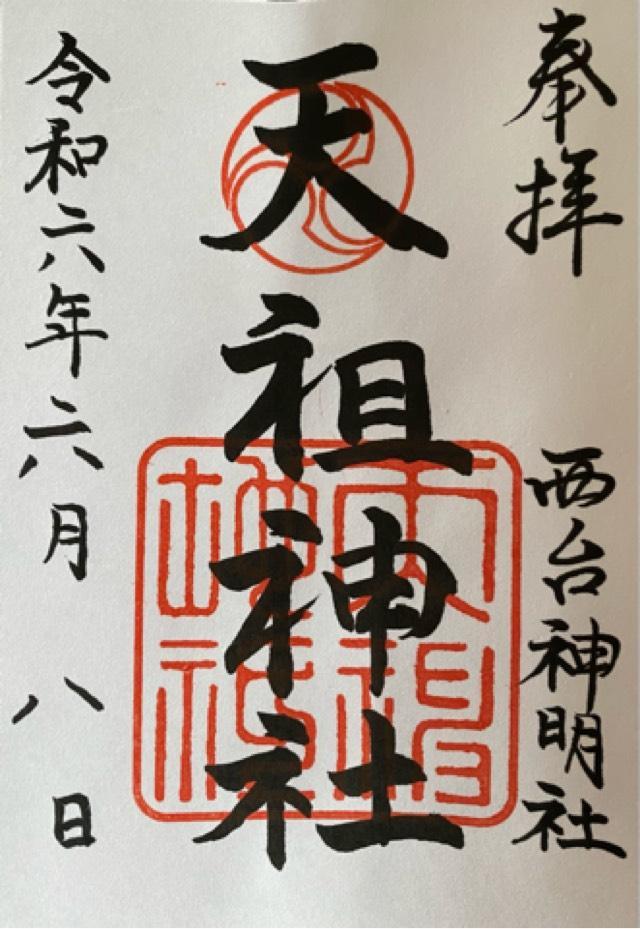 奉拝
西台神明社
天祖神社
令和六年六月八日